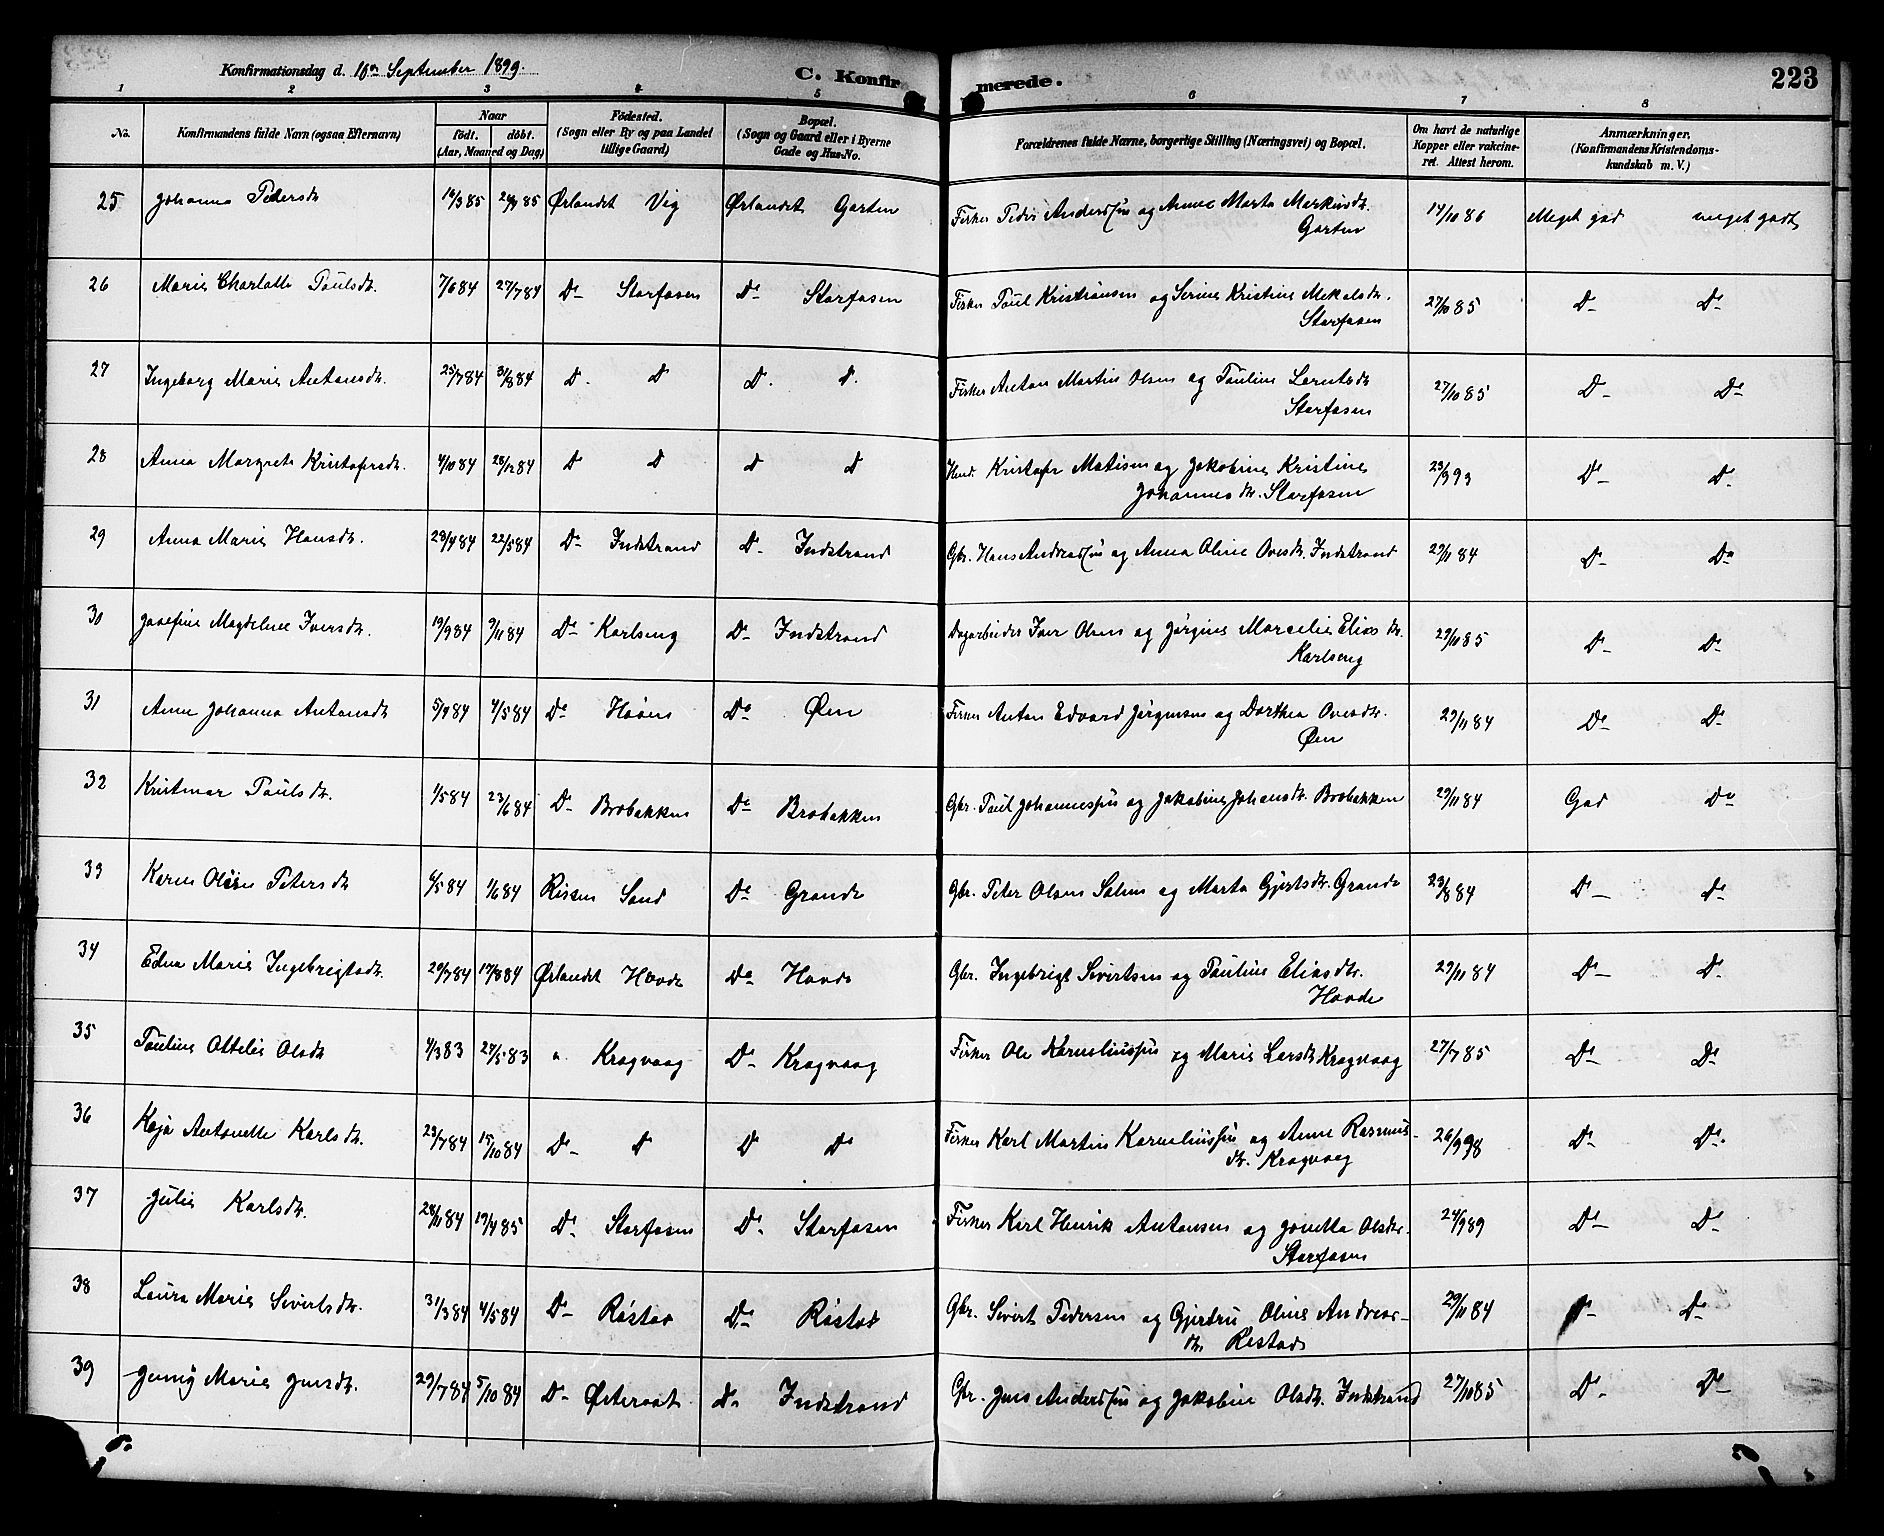 Konfirmationsdag d. 10de September 1899. C. Konfirmerede. 223
1 2 3 4 5 6 7 8
No. Konfirmandens fulde Navn (ogsaa Efternavn) Naar født. døbt. (Aar, Maaned og Dag) Fødested. (Sogn eller By og paa Landet tillige Gaard) Bopæl. (Sogn og Gaard eller i Byerne Gade og Hus-No. Forældrenes fulde Navne, borgerlige Stilling (Næringsvei) og Bopæl. Om havt de naturlige Kopper eller vakcineret. Attest herom. Anmærkninger. (Konfirmandens Kristendomskundskab m. V.)
25 Johanna Pedersdtr 85 85 Ørlandet Vig Ørlandet Garten Fisker Peder Andersssøn og Anne Marta Markusdtr. 14/10 86 Meget god meget godt
Garten
26 Marie Charlotte Paulsdtr. 7/6 84 27/7 84 Do Storfosen Do Storfosen Fisker Paul Kristiansen og Serine Kristine Mekalsdtr. 27/10 85 Do Do
Storfosen
27 Ingeborg Marie Antonsdtr. 25/7 84 31/8 84 D. D D. D. Fisker Anton Martin Olsen og Pauline Lorntsdtr 27/10 85 D Do
Storfosen
28 Anna Margrete Kristofersdtr. 4/10 84 28/12 84 D D D D Kristofer Matisen og Jakobine Kristine 23/9 93 Do D
Johannesdtr. Storfosen
29 Anna Marie Hansdtr. 23/4 84 22/5 84 Do Indstrand D Indstrand Gbr. Hans Andreassøn og Anna Oline Ovesdtr. Indstrand 29/11 84 D Do
30 Josefine Magdelene Iversdtr. 19/9 84 9/11 84 Do Karlseng D Indstrand Dagarbeider Iver Olsen og Jørgine Marcelie Eliasdtr. 29/10 85 D D
Karlseng
31 Anne Johanna Antonsdtr 84 4/5 84 Do Høøen Do Øen Fisker Anton Edvard Jørgensen og Dorthea Ovesdtr. 29/11 84 Do Do
Øen
32 Kristmar Paulsdtr. 1/5 84 23/6 84 D Brobakken Do Brobakken Gbr. Paul Johannessøn og Jakobine Johansdtr. Brobakken 29/11 84 God Do
33 Karen Petersdtr 6/5 84 1/6 84 Rissen Sand Do Grande Gbr. Peter Olsen og Marta Gjertsdtr. Grande 23/8 84 D Do
34 Edna Marie Ingebrigtsdtr. 29/7 84 17/8 84 Ørlandet Hovde Do Hovde Gbr. Ingebrigt Sivertsen og Pauline Eliasdtr. 29/11 84 D Do
Hovde
35 Pauline Ottelie Olsdtr 4/3 83 27/5 83 " Kragvaag Do Kragvaag Fisker Ole Korneliussøn og Marie Larsdtr Kragvaag 27/7 85 Do Do
36 Kaja Antonette Karlsdtr. 23/7 84 15/10 84 Do D D Do Fisker Karl Martin Korneliussøn og Anne Rasmus- 26/9 98 Do Do
dtr. Kragvaag
37 Julie Karlsdtr. 28/11 84 19/4 85 Do Storfosen Do Storfosen Fisker Karl Henrik Antonsen og Jonetta Olsdtr. 24/9 89 Do Do
Storfosen
38 Laura Marie Sivertsdtr. 31/3 84 4/5 84 Do Røstad Do Røstad Gbr. Sivert Pedersen og Gjertru Oline Andreas- 29/11 84 D Do
dtr. Røstad
39 Jenny Marie Jensdtr. 29/7 84 5/10 84 D Østeraat D Indstrand Gbr. Jens Anderssøn og Jakobine Olsdtr. Indstrand 27/10 85 D D